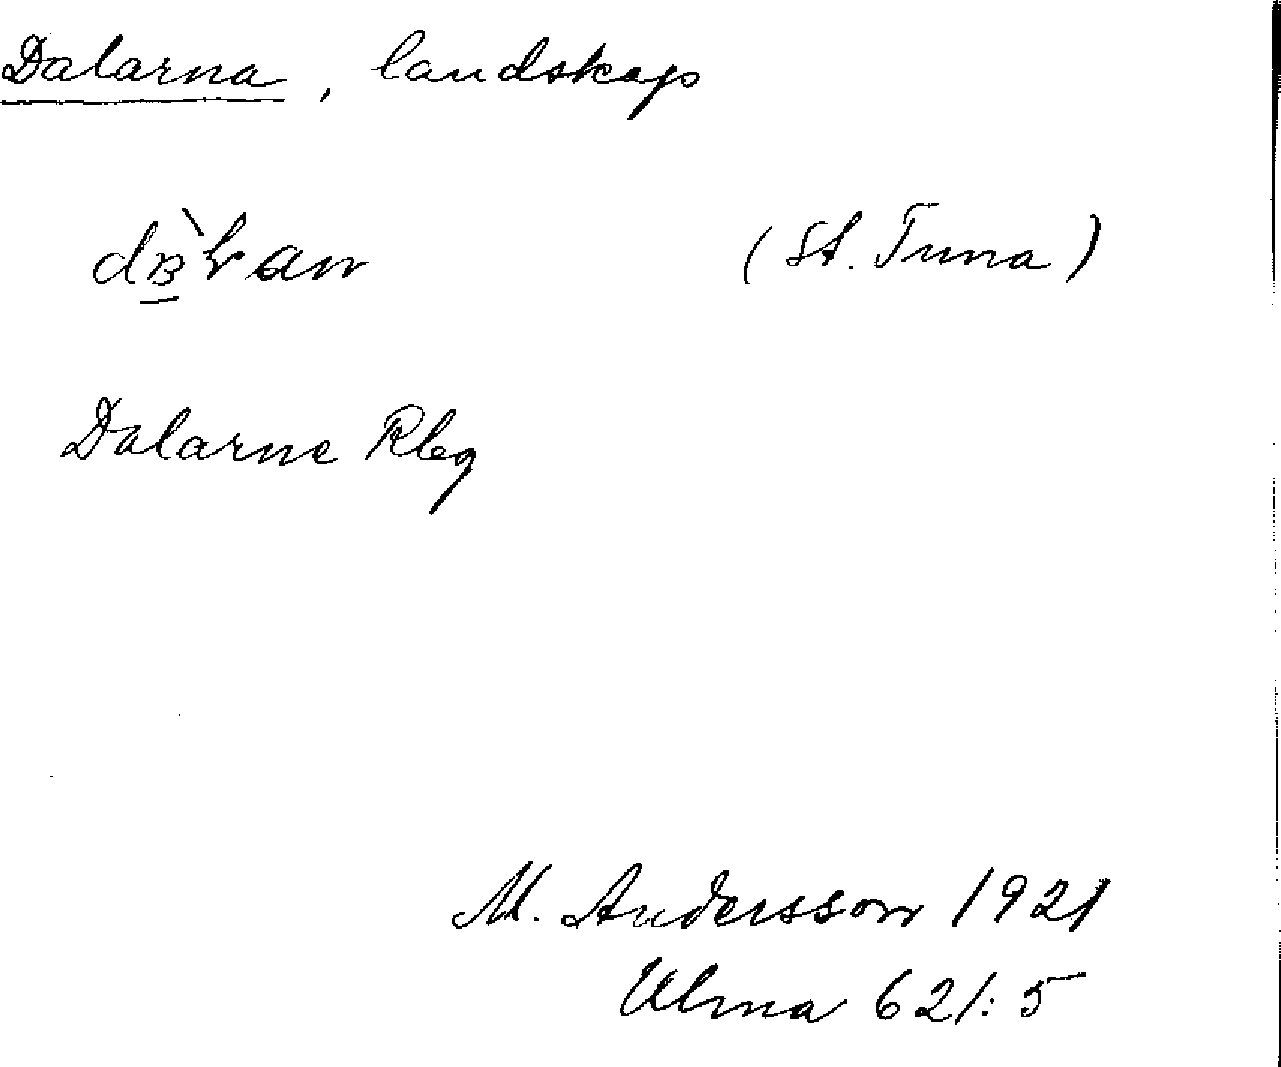 Dalarna, landskap
(St. Tuna)
Dalarne Rleg
M. Andersson 1921
Ulma 621:5